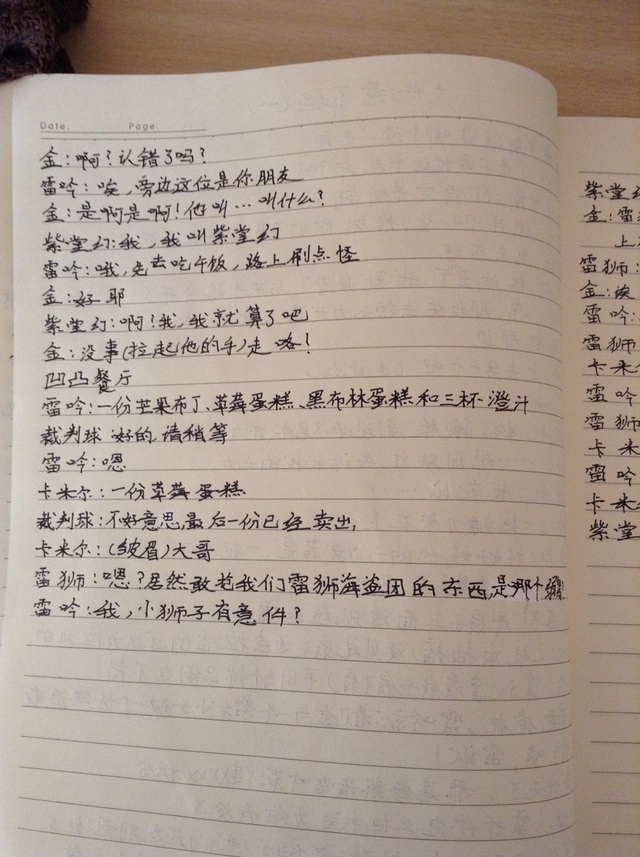 Date. Page.
金:啊?认错了吗?
雷吟:唉,旁边这位是你朋友
金:是啊是啊!他叫…叫什么?
紫堂幻:我,我叫紫堂幻
雷吟:哦,先去吃午饭,路上刷点怪
金:好耶
紫堂幻:啊!我,我就算了吧
金:没事(拉起他的手)走咯!
凹凸餐厅
雷吟:一份芒果布丁、草莓蛋糕、黑布林蛋糕和三杯澄汁
裁判球:好的,请稍等
雷吟:嗯
卡米尔:一份草莓蛋糕
裁判球:不好意思,最后一份已经卖出,
卡米尔:(皱眉)大哥
雷狮:嗯?居然敢抢我们雷狮海盗团的东西,是那个
雷吟:我,小狮子有意件?
紫堂幻
金:雷
上
雷狮:
金:诶
雷吟:
雷狮
卡米
雷吟
雷狮
卡米
雷吟
卡米
紫堂